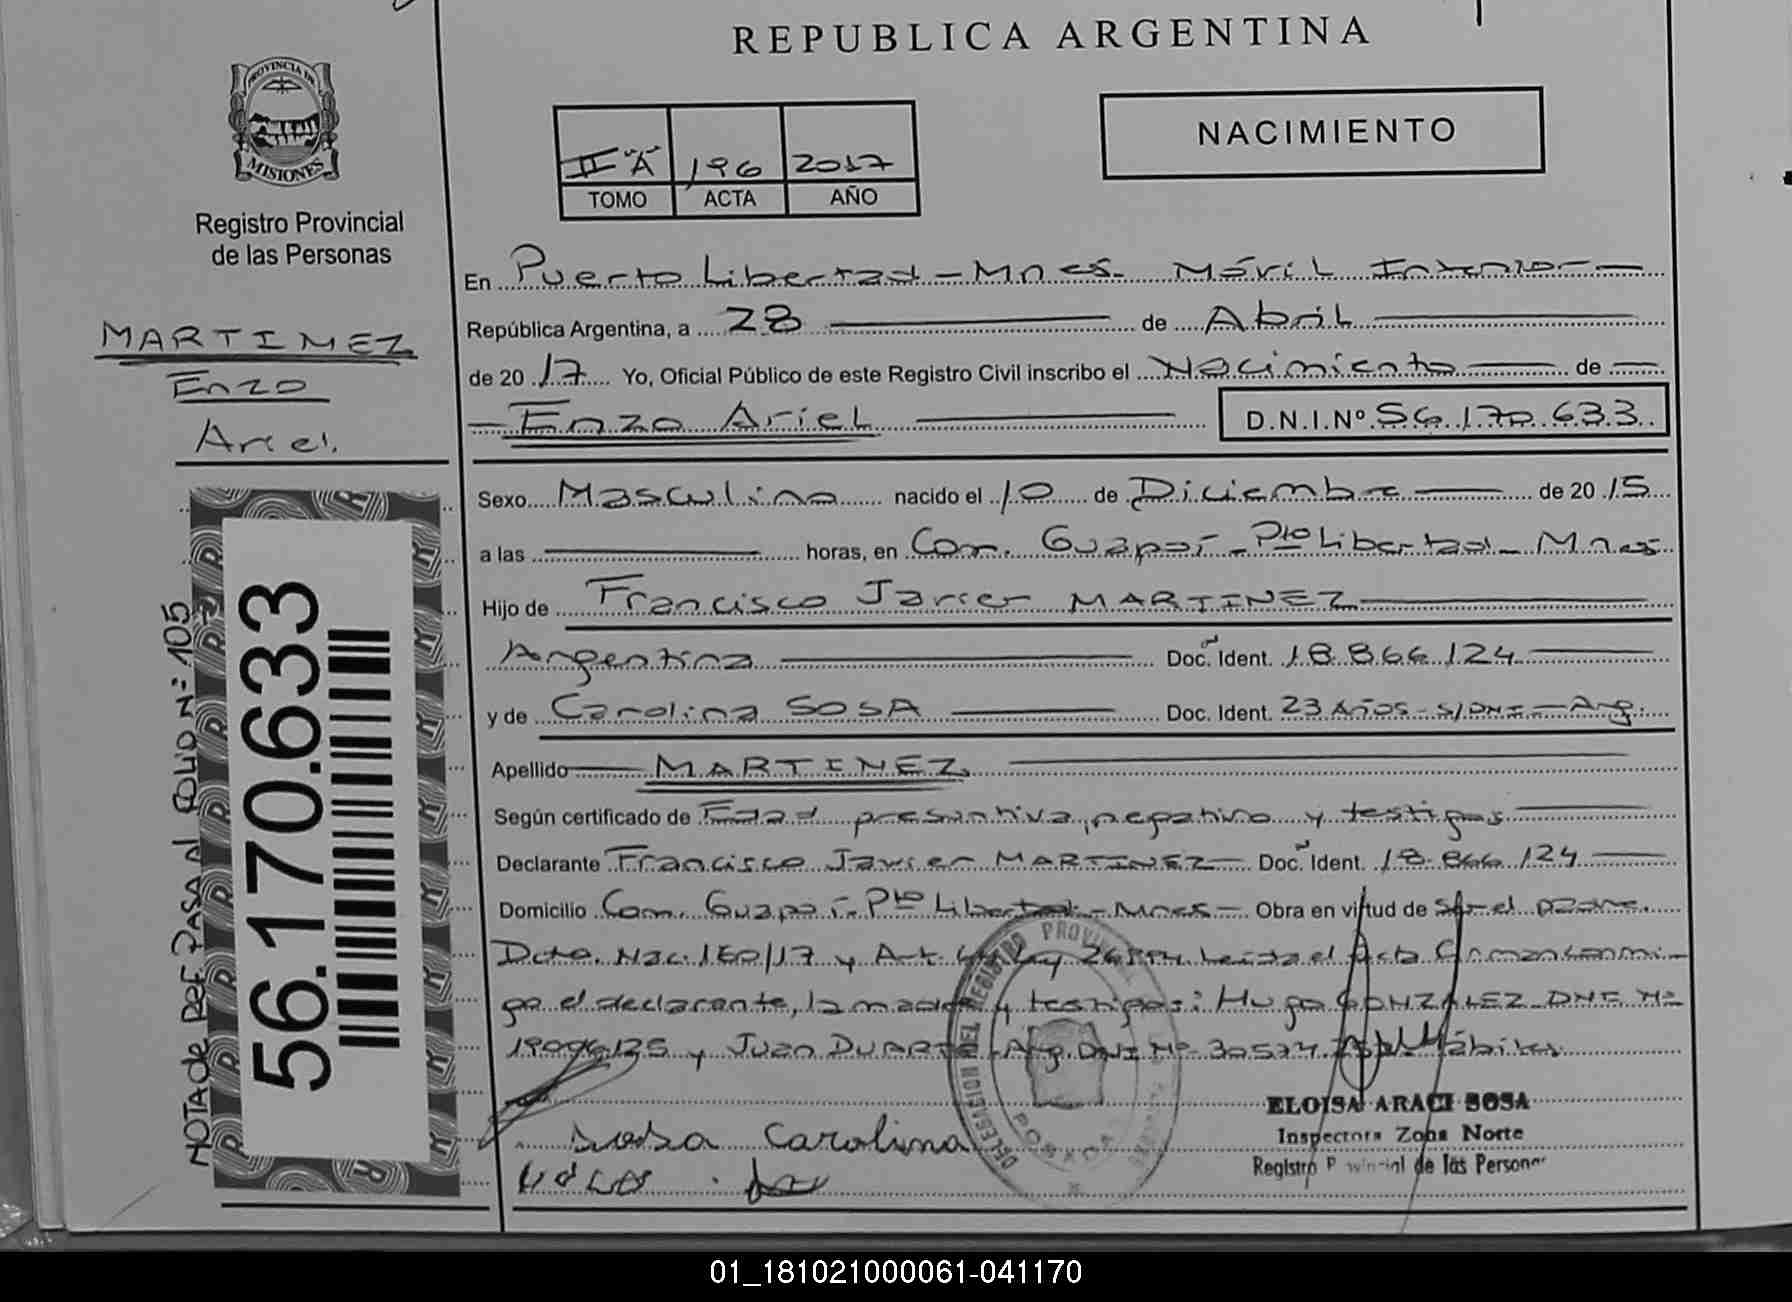 REPUBLICA ARGENTINA
PROVINCIA DE
MISIONES
Registro Provincial
de las Personas
NACIMIENTO
II "A" 196 2017
TOMO ACTA AÑO
MARTINEZ
Enzo
Ariel.
En Puerto Libertad - Mnes. Móvil Interior
República Argentina, a 28 de Abril
de 2017 Yo, Oficial Público de este Registro Civil inscribo el Nacimiento de
Enzo Ariel D.N.I.Nº 56.170.633
Sexo Masculino nacido el 10 de Diciembre de 2015
a las horas, en Com. Guapoí - Pto Libertad - Mnes
Hijo de Francisco Javier MARTINEZ
Argentina Doc. Ident. 18.866.124
y de Carolina SOSA Doc. Ident. 23 Años - S/DNI - Arg.
Apellido MARTINEZ
Según certificado de Edad presuntiva, negativo y testigos
Declarante Francisco Javier MARTINEZ Doc. Ident. 18.866.124
Domicilio Com. Guapoí - Pto Libertad - Mnes - Obra en virtud de ser el padre.
Dcto. Nac. 160/17 y Art. Ley Leida el Acta firman conmi-
go el declarante, la madre y testigos: Hugo GONZALEZ DNI Nº
19096125 y Juan DUARTE Arg. DNI Nº Hábiles
Sosa Carolina
ELOISA ARACI SOSA
Inspectora Zona Norte
Registro Provincial de las Personas
DELEGACION DEL REGISTRO PROVINCIAL
POSADAS
56.170.633
NOTA de REF. PASA Al FOLIO Nº 105
01_181021000061-041170